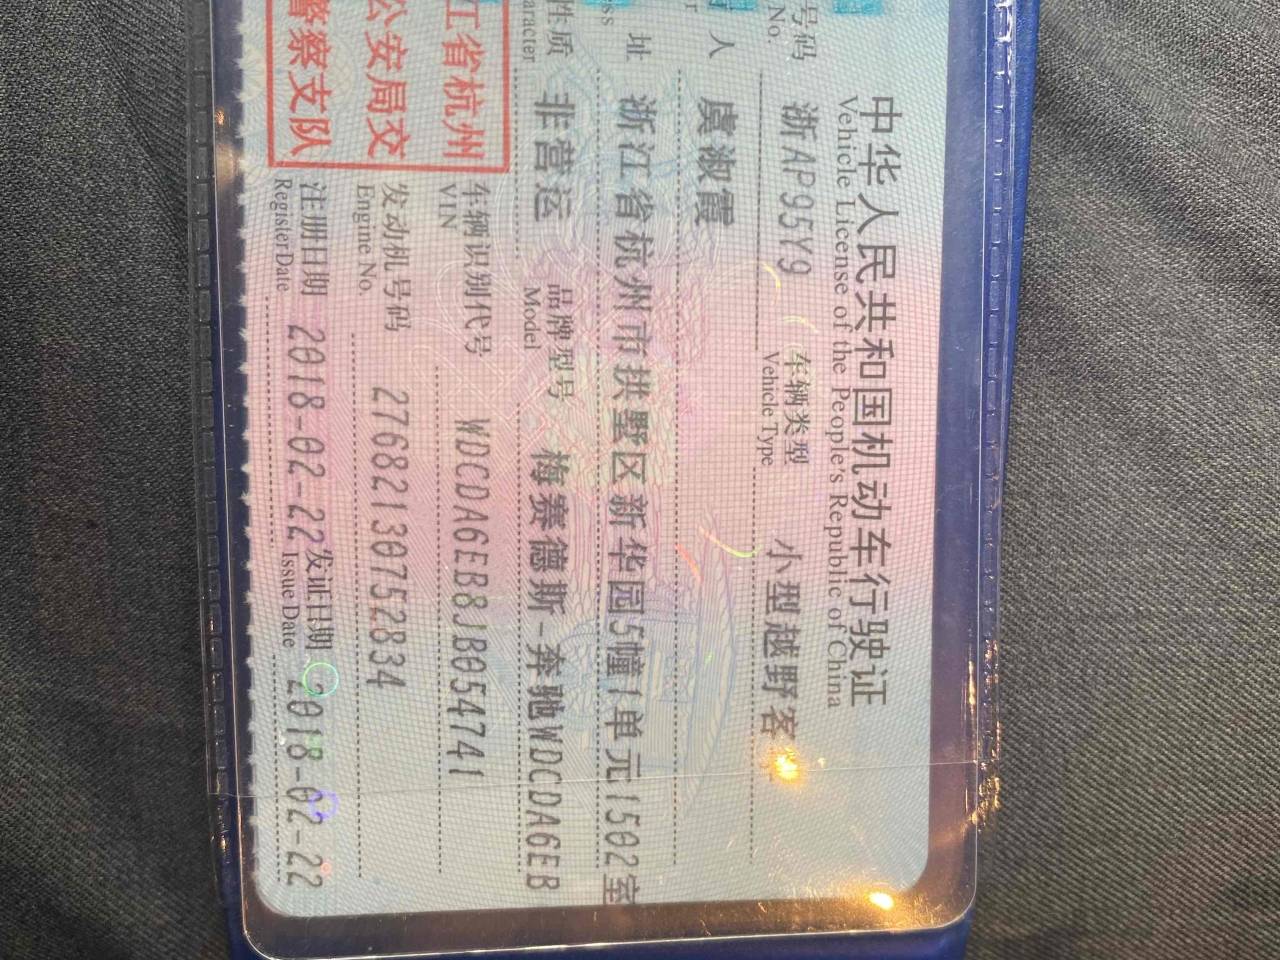 中华人民共和国机动车行驶证
Vehicle License of the People's Republic of China
号码 浙AP95Y9 车辆类型 小型越野客
No. Vehicle Type
人 虞淑霞
r
址 浙江省杭州市拱墅区新华园5幢1单元1502室
ess
性质 非营运 品牌型号 梅赛德斯-奔驰WDCDA6EB
aracter Model
江省杭州
公安局交
警察支队
车辆识别代号 WDCDA6EB8JB054741
VIN
发动机号码 27682130752834
Engine No.
注册日期 2018-02-22 发证日期 2018-02-22
Register Date Issue Date